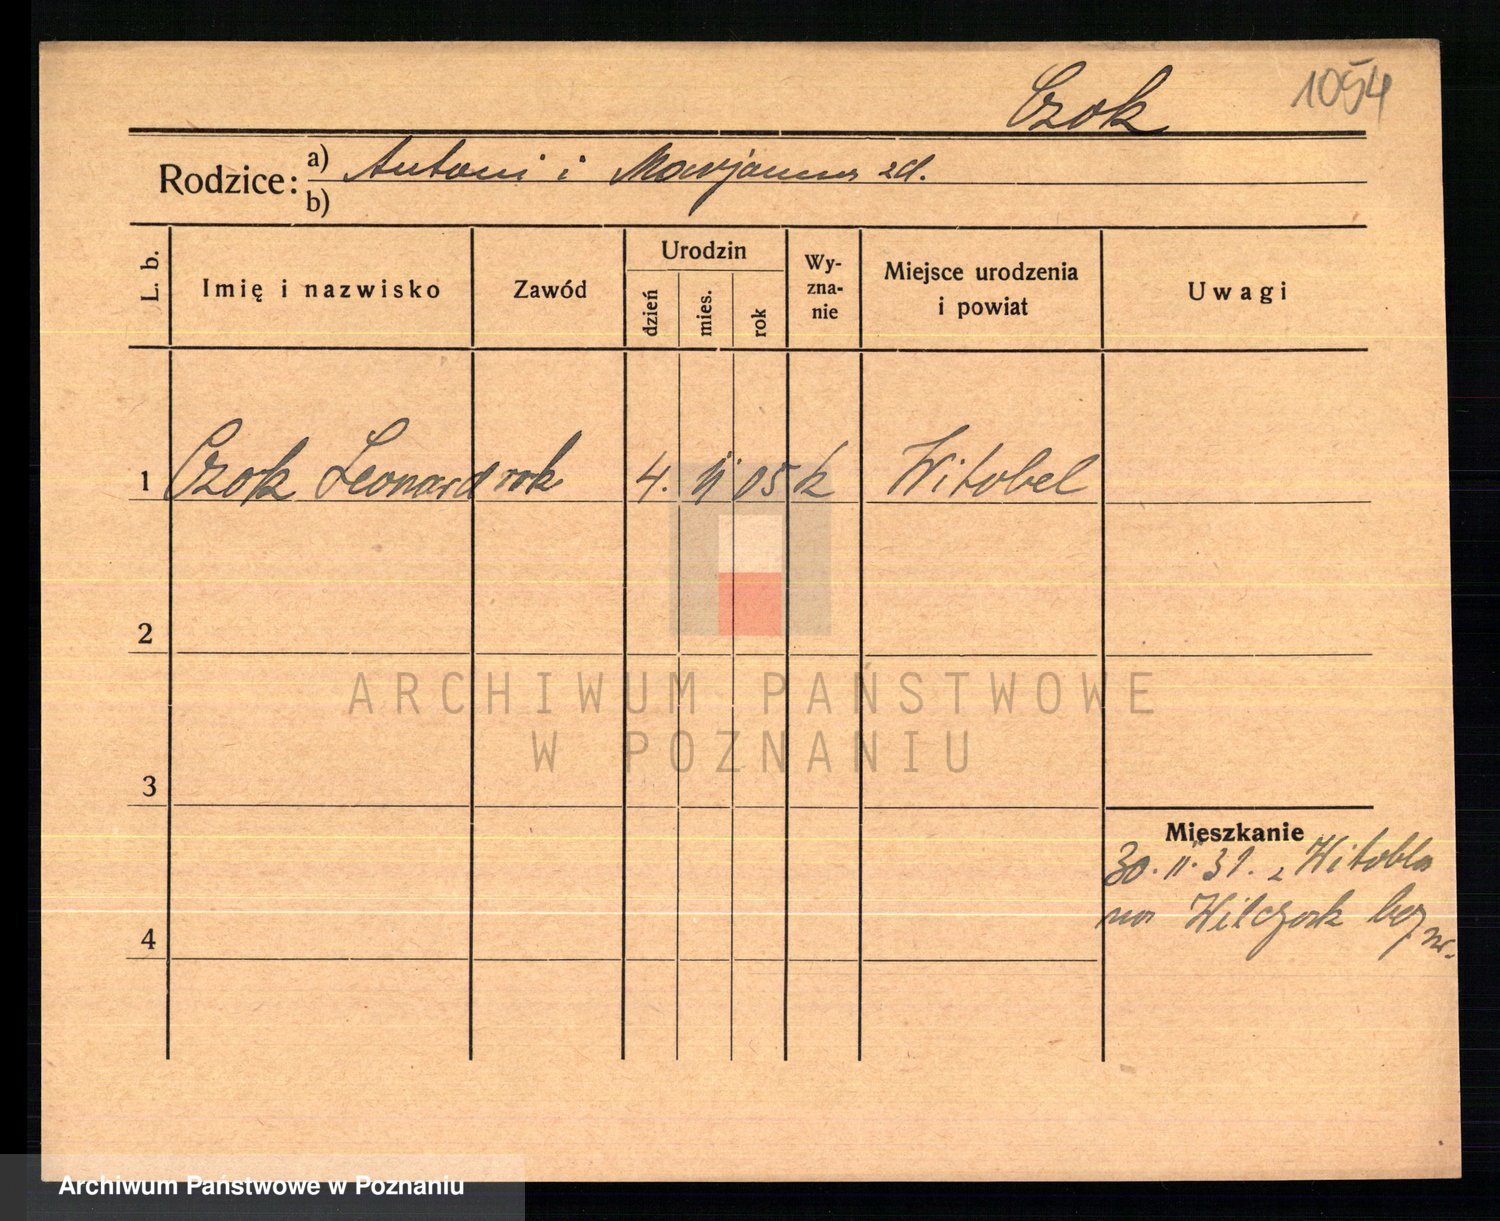 Czok 1054
Rodzice: a) Antoni i Marjanna zd.
b)
L. b. Imię i nazwisko Zawód Urodzin dzień mies. rok Wy-zna-nie Miejsce urodzenia i powiat Uwagi
1 Czok Leonard rob 4. 11 05 k Witobel
2
3
Mieszkanie
30. 11. 31. z Witobla
na Wilczak bez nr.
4
ARCHIWUM PAŃSTWOWE
W POZNANIU
Archiwum Państwowe w Poznaniu